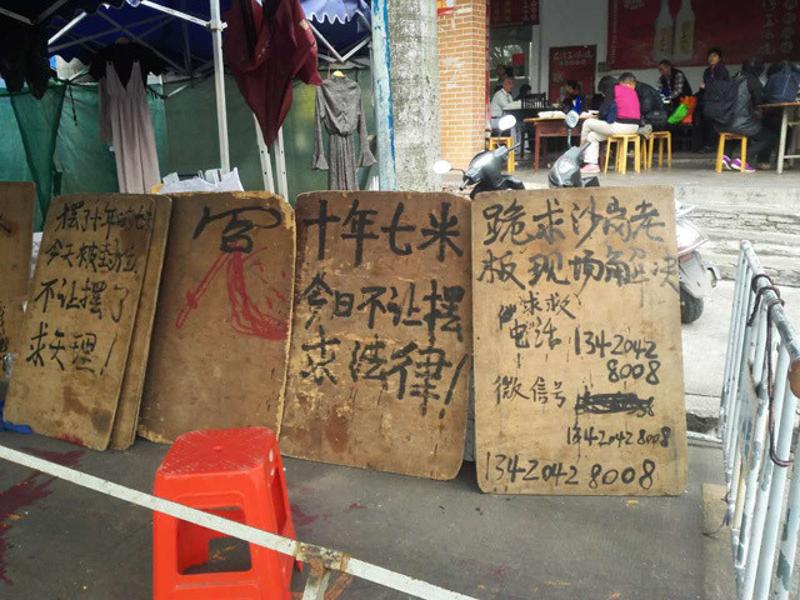 摆了十年的七米
今天被
不让摆了
求天理！
十年七米
今日不让摆
求法律！
跪求沙岗老
板现场解决
求救
电话 13420428008
微信号
13420428008
13420428008